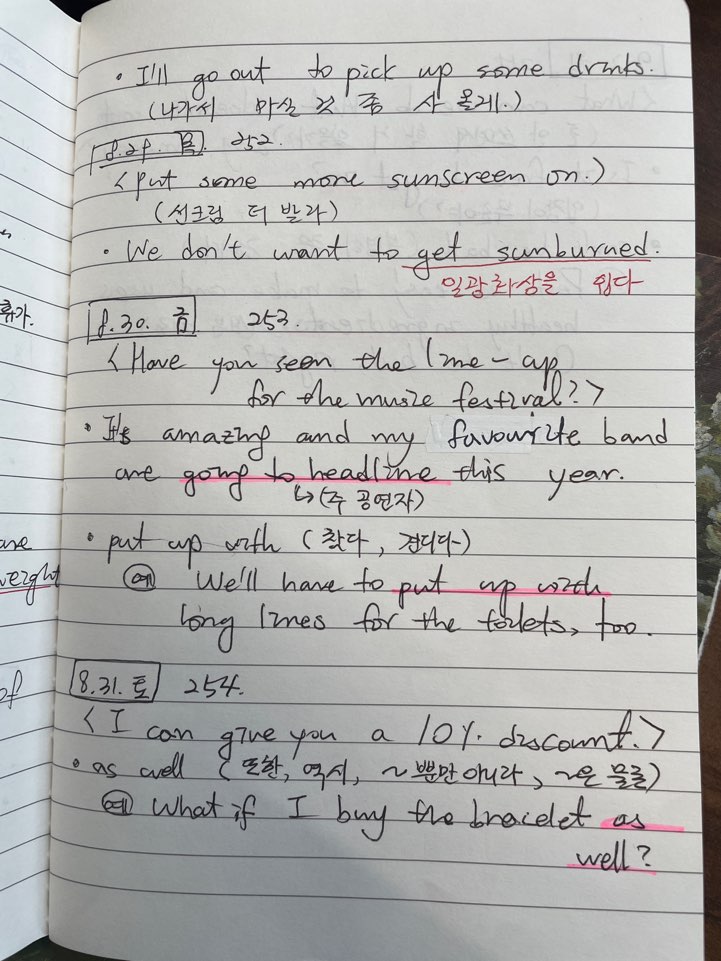 • I'll go out to pick up some drinks.
(나가서 마실 것 좀 사 올게.)
8.29 목. 252.
<Put some more sunscreen on.>
(선크림 더 발라)
• We don't want to get sunburned.
일광화상을 입다
8.30. 금 253.
<Have you seen the line-up
for the music festival?>
• It's amazing and my favourite band
are going to headline this year.
↳(주 공연자)
• put up with (참다, 견디다)
예 We'll have to put up with
long lines for the toilets, too.
8.31. 토 254.
<I can give you a 10% discount.>
• as well (또한, 역시, ~뿐만 아니라, ~은 물론)
예 What if I buy the bracelet as
well?
휴가.
are
weight
of